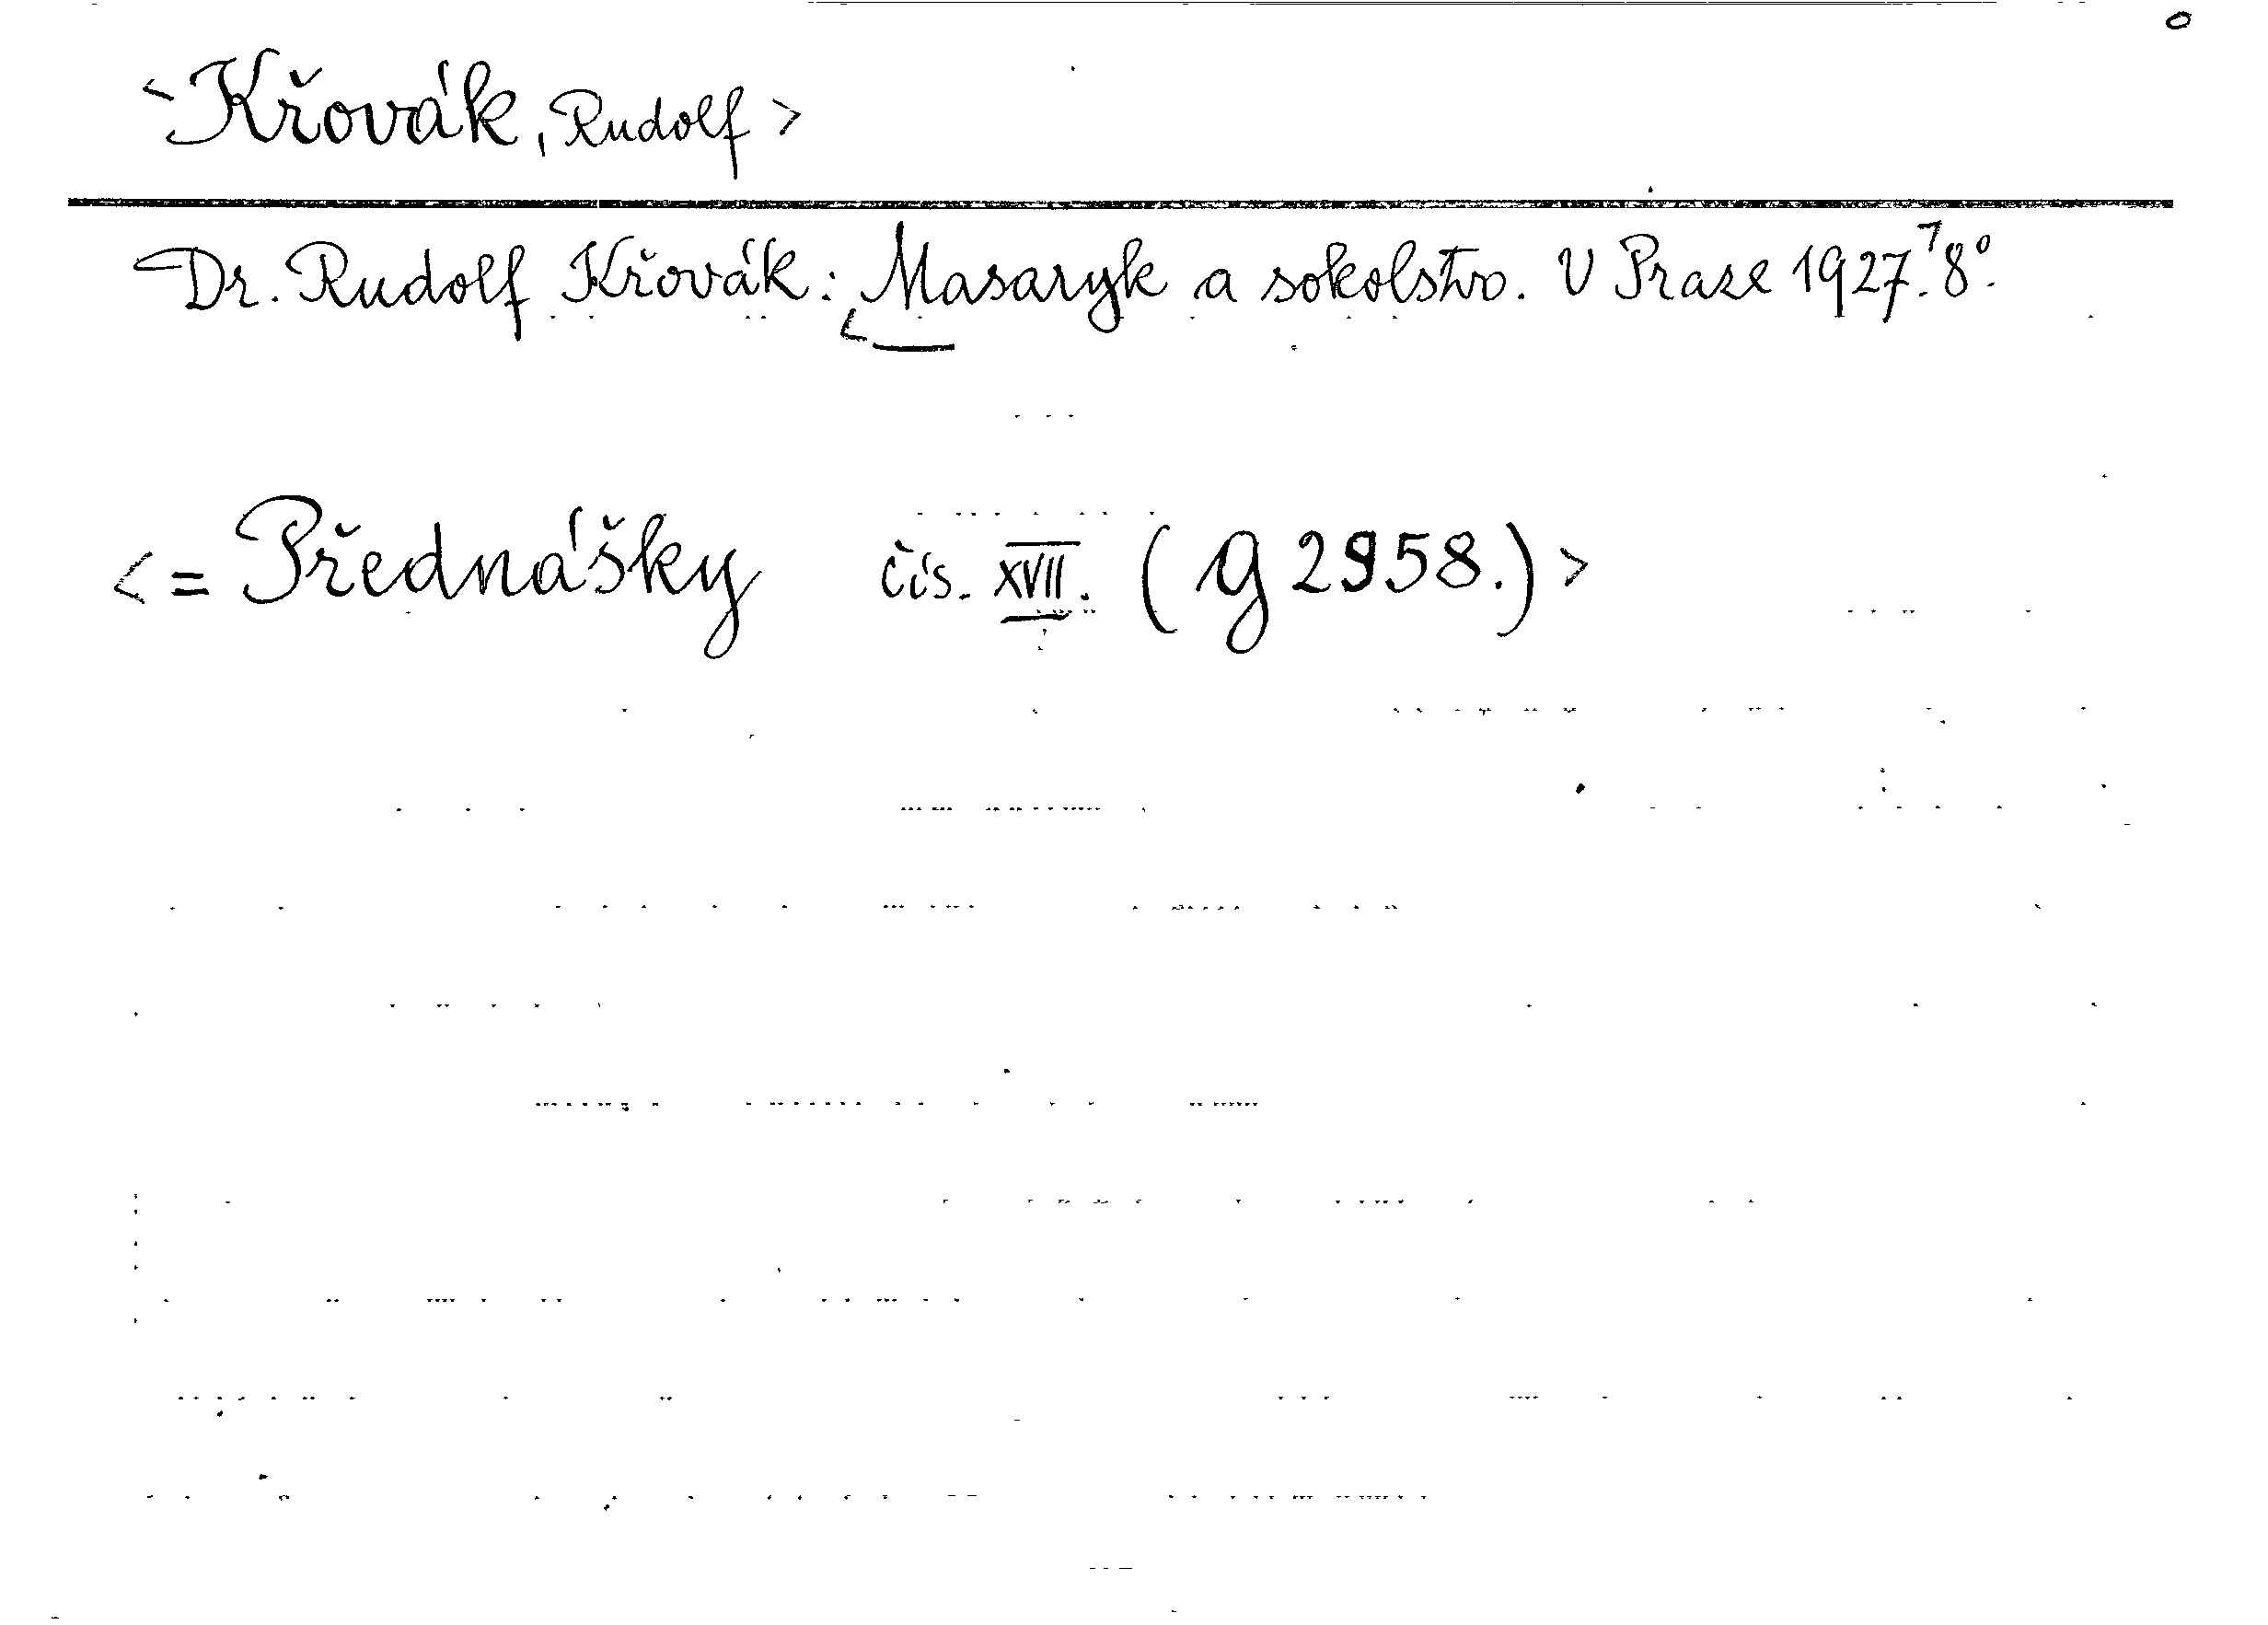 <Křovák, Rudolf>
Dr. Rudolf Křovák: Masaryk a sokolstvo. V Praze 1927. 8°.
<= Přednášky čís. XVII. (g 2958.)>